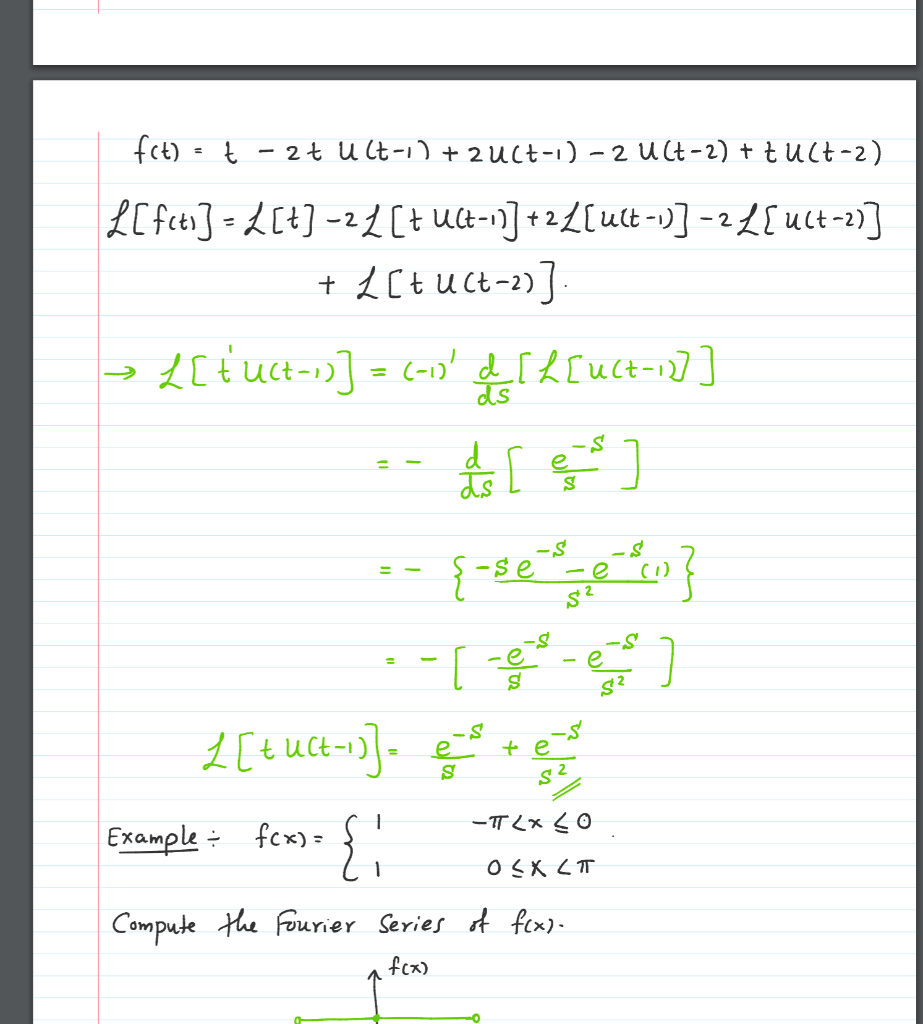 f(t) = t - 2t u(t-1) + 2u(t-1) - 2 u(t-2) + t u(t-2)
ℒ[f(t)] = ℒ[t] - 2ℒ[t u(t-1)] + 2ℒ[u(t-1)] - 2ℒ[u(t-2)]
+ ℒ[t u(t-2)].
→ ℒ[t¹ u(t-1)] = (-1)¹ d/ds [ℒ[u(t-1)]]
= - d/ds [ e^{-s}/s ]
= - { (-s e^{-s} - e^{-s} (1))/s² }
= - [ -e^{-s}/s - e^{-s}/s² ]
ℒ[t u(t-1)] = e^{-s}/s + e^{-s}/s²
Example ÷ f(x) = { 1 -π < x ≤ 0 .
1 0 ≤ x < π
Compute the Fourier Series of f(x).
f(x)